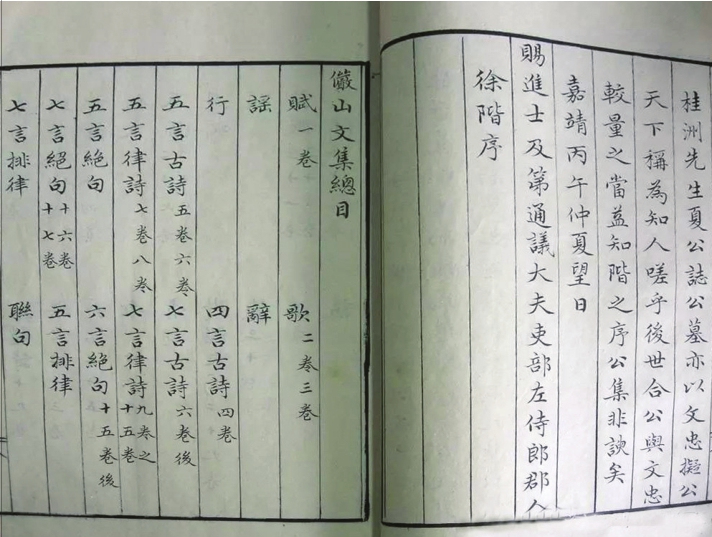 桂洲先生夏公誌公墓亦以文忠擬公
天下稱為知人嗟乎後世合公與文忠
較量之當益知階之序公集非諛矣
嘉靖丙午仲夏望日
賜進士及第通議大夫吏部左侍郎郡人
徐階序
儼山文集總目
賦一卷 歌二卷三卷
謡 辭
行 四言古詩四卷
五言古詩五卷六卷 七言古詩六卷後
五言律詩七卷八卷 七言律詩九卷之十五卷
五言絕句 六言絕句十五卷後
七言絕句十六卷十七卷 五言排律
七言排律 聯句